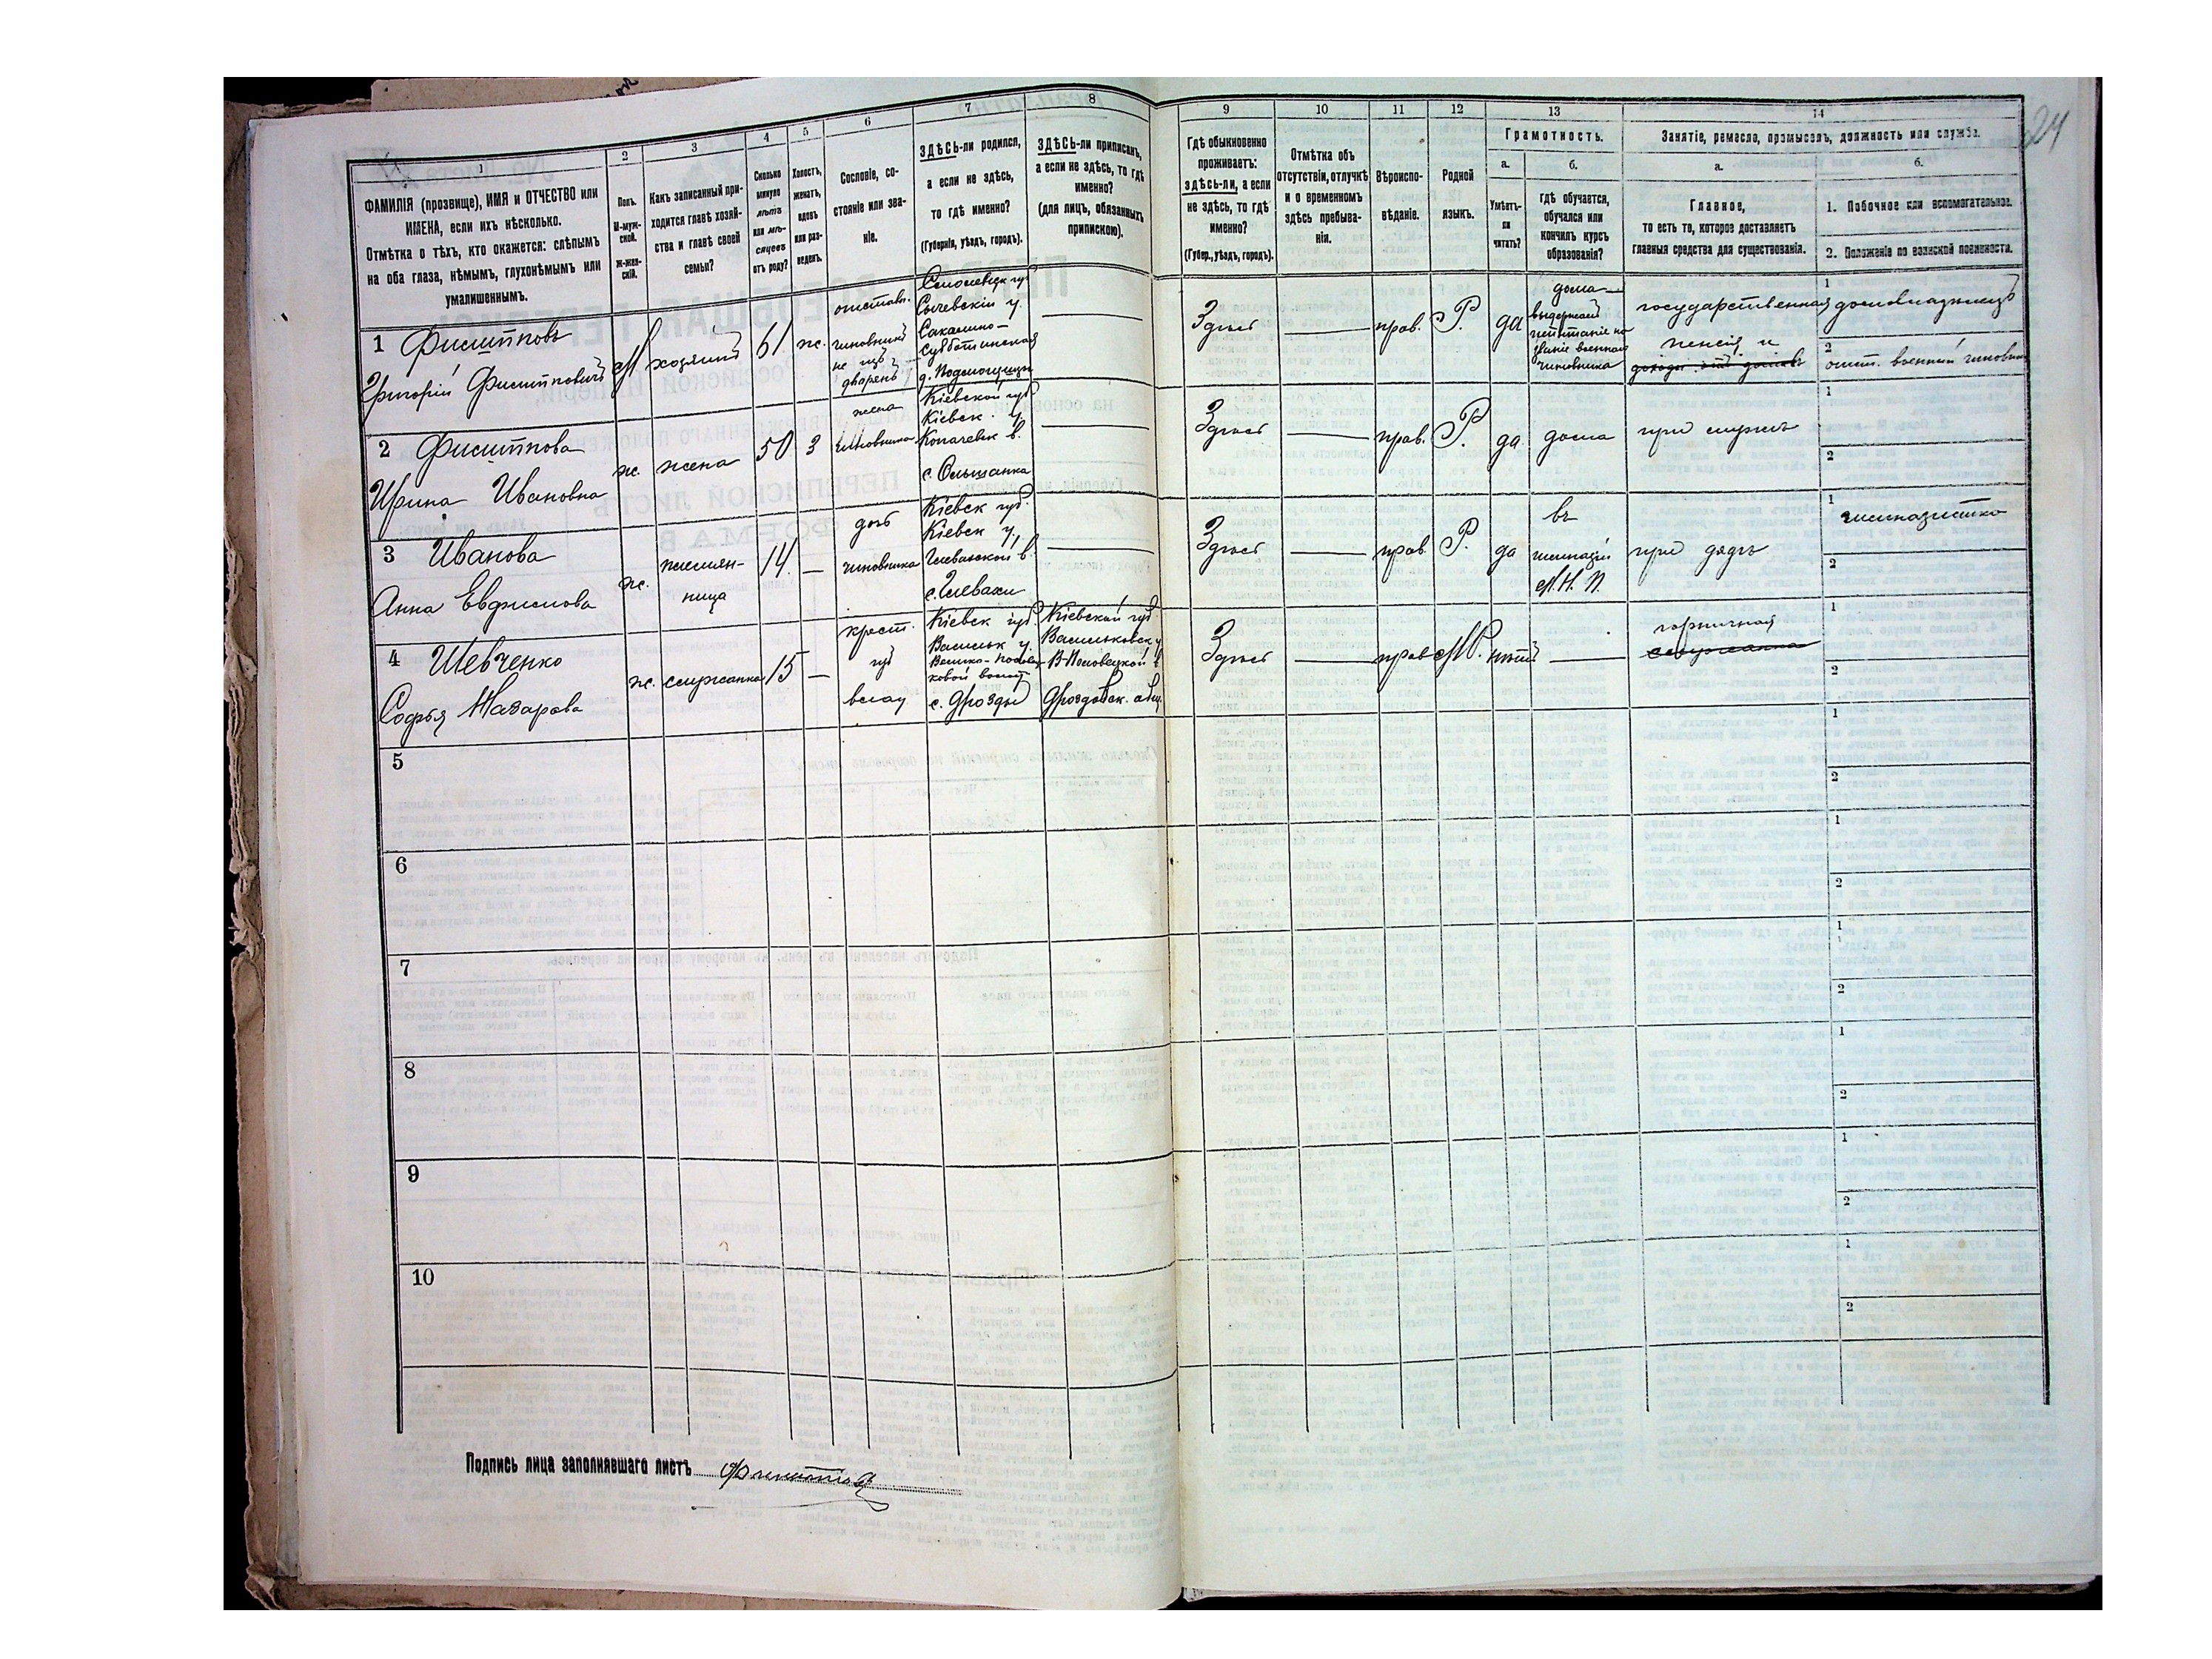 24
1
ФАМИЛІЯ (прозвище), ИМЯ и ОТЧЕСТВО или
ИМЕНА, если ихъ нѣсколько.
Отмѣтка о тѣхъ, кто окажется: слѣпымъ
на оба глаза, нѣмымъ, глухонѣмымъ или
умалишеннымъ.
2
Полъ.
М-муж-
ской.
Ж-жен-
скій.
3
Какъ записанный при-
ходится главѣ хозяй-
ства и главѣ своей
семьи?
4
Сколько
минуло
лѣтъ
или мѣ-
сяцевъ
отъ роду?
5
Холостъ,
женатъ,
вдовъ
или раз-
веденъ.
6
Сословіе, со-
стояніе или зва-
ніе.
7
ЗДѢСЬ-ли родился,
а если не здѣсь,
то гдѣ именно?
(Губернія, уѣздъ, городъ).
8
ЗДѢСЬ-ли приписанъ,
а если не здѣсь, то гдѣ
именно?
(для лицъ, обязанныхъ
припискою).
9
Гдѣ обыкновенно
проживаетъ:
здѣсь-ли, а если
не здѣсь, то гдѣ
именно?
(Губер., уѣздъ, городъ).
10
Отмѣтка объ
отсутствіи, отлучкѣ
и о временномъ
здѣсь пребыва-
ніи.
11
Вѣроиспо-
вѣданіе.
12
Родной
языкъ.
13
Грамотность.
а.
Умѣетъ-
ли
читать?
б.
гдѣ обучается,
обучался или
кончилъ курсъ
образованія?
14
Занятіе, ремесло, промыселъ, должность или служба.
а.
Главное,
то есть то, которое доставляетъ
главныя средства для существованія.
б.
1. Побочное или вспомогательное.
2. Положеніе по воинской повинности.
1 Филиповъ
Григорій Филиповичъ
М
хозяинъ
61
ж.
отставн.
чиновникъ
не изъ
дворянъ
Смоленск губ
Сычевскій у.
Сакалино-
Субботинская
Здѣсь
прав.
Р.
да
дома
выдержалъ
испытаніе на
званіе военнаго
чиновника
государственная
пенсія и
доходъ отъ домовъ
1
домовладѣлецъ
2
отст. военный чиновн
2 Филипова
Ирина Ивановна
ж.
жена
50
З
жена
чиновника
Кіевской губ
Кіевск. у.
с. Ольшанка
Здѣсь
прав.
Р.
да
дома
при мужѣ
1
2
3 Иванова
Анна Евфимова
ж.
племян-
ница
14.
дочь
чиновника
Кіевск губ.
Кіевск у.
Глевахской в
с. Глеваки
Здѣсь
прав
Р.
да
въ
гимназіи
М. Н. П.
при дядѣ
1
гимназистка
2
4 Шевченко
Софья Назарова
ж.
служанка
15
крест.
изъ
влад
Кіевск губ.
Васильк у.
Велико-Половец-
ковой волост
с. Дрозды
Кіевской губ
Васильковск у
В-Половецкой в
Дроздовск. общ.
Здѣсь
прав
МР.
нѣтъ
горничная
служанка
1
2
5
1
2
6
1
2
7
1
2
8
1
2
9
1
2
10
1
2
Подпись лица заполнявшаго листъ